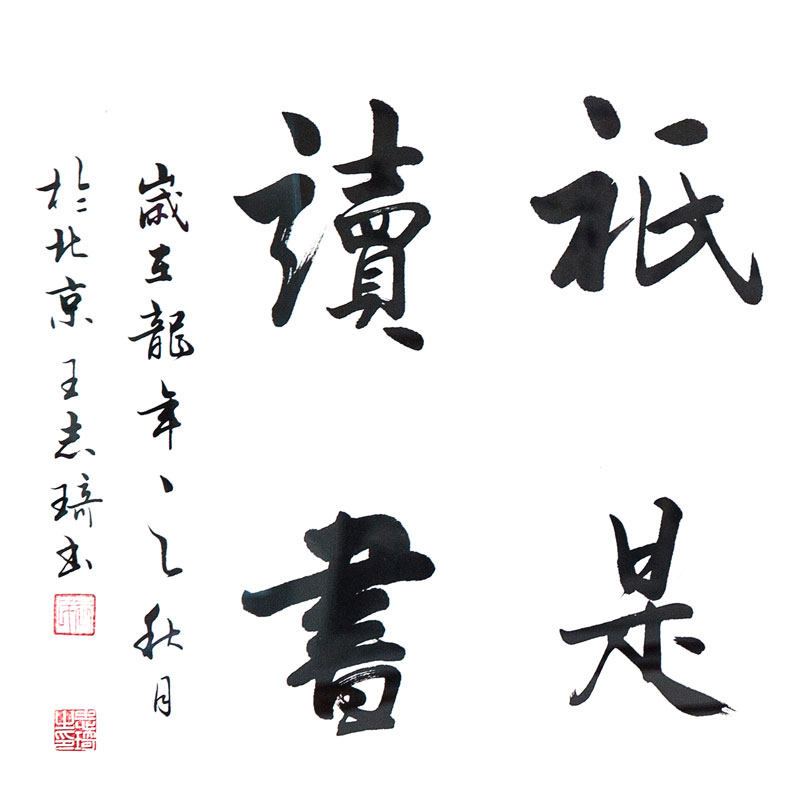 祇是
讀書
歲在龍年之秋月
於北京王志琦書